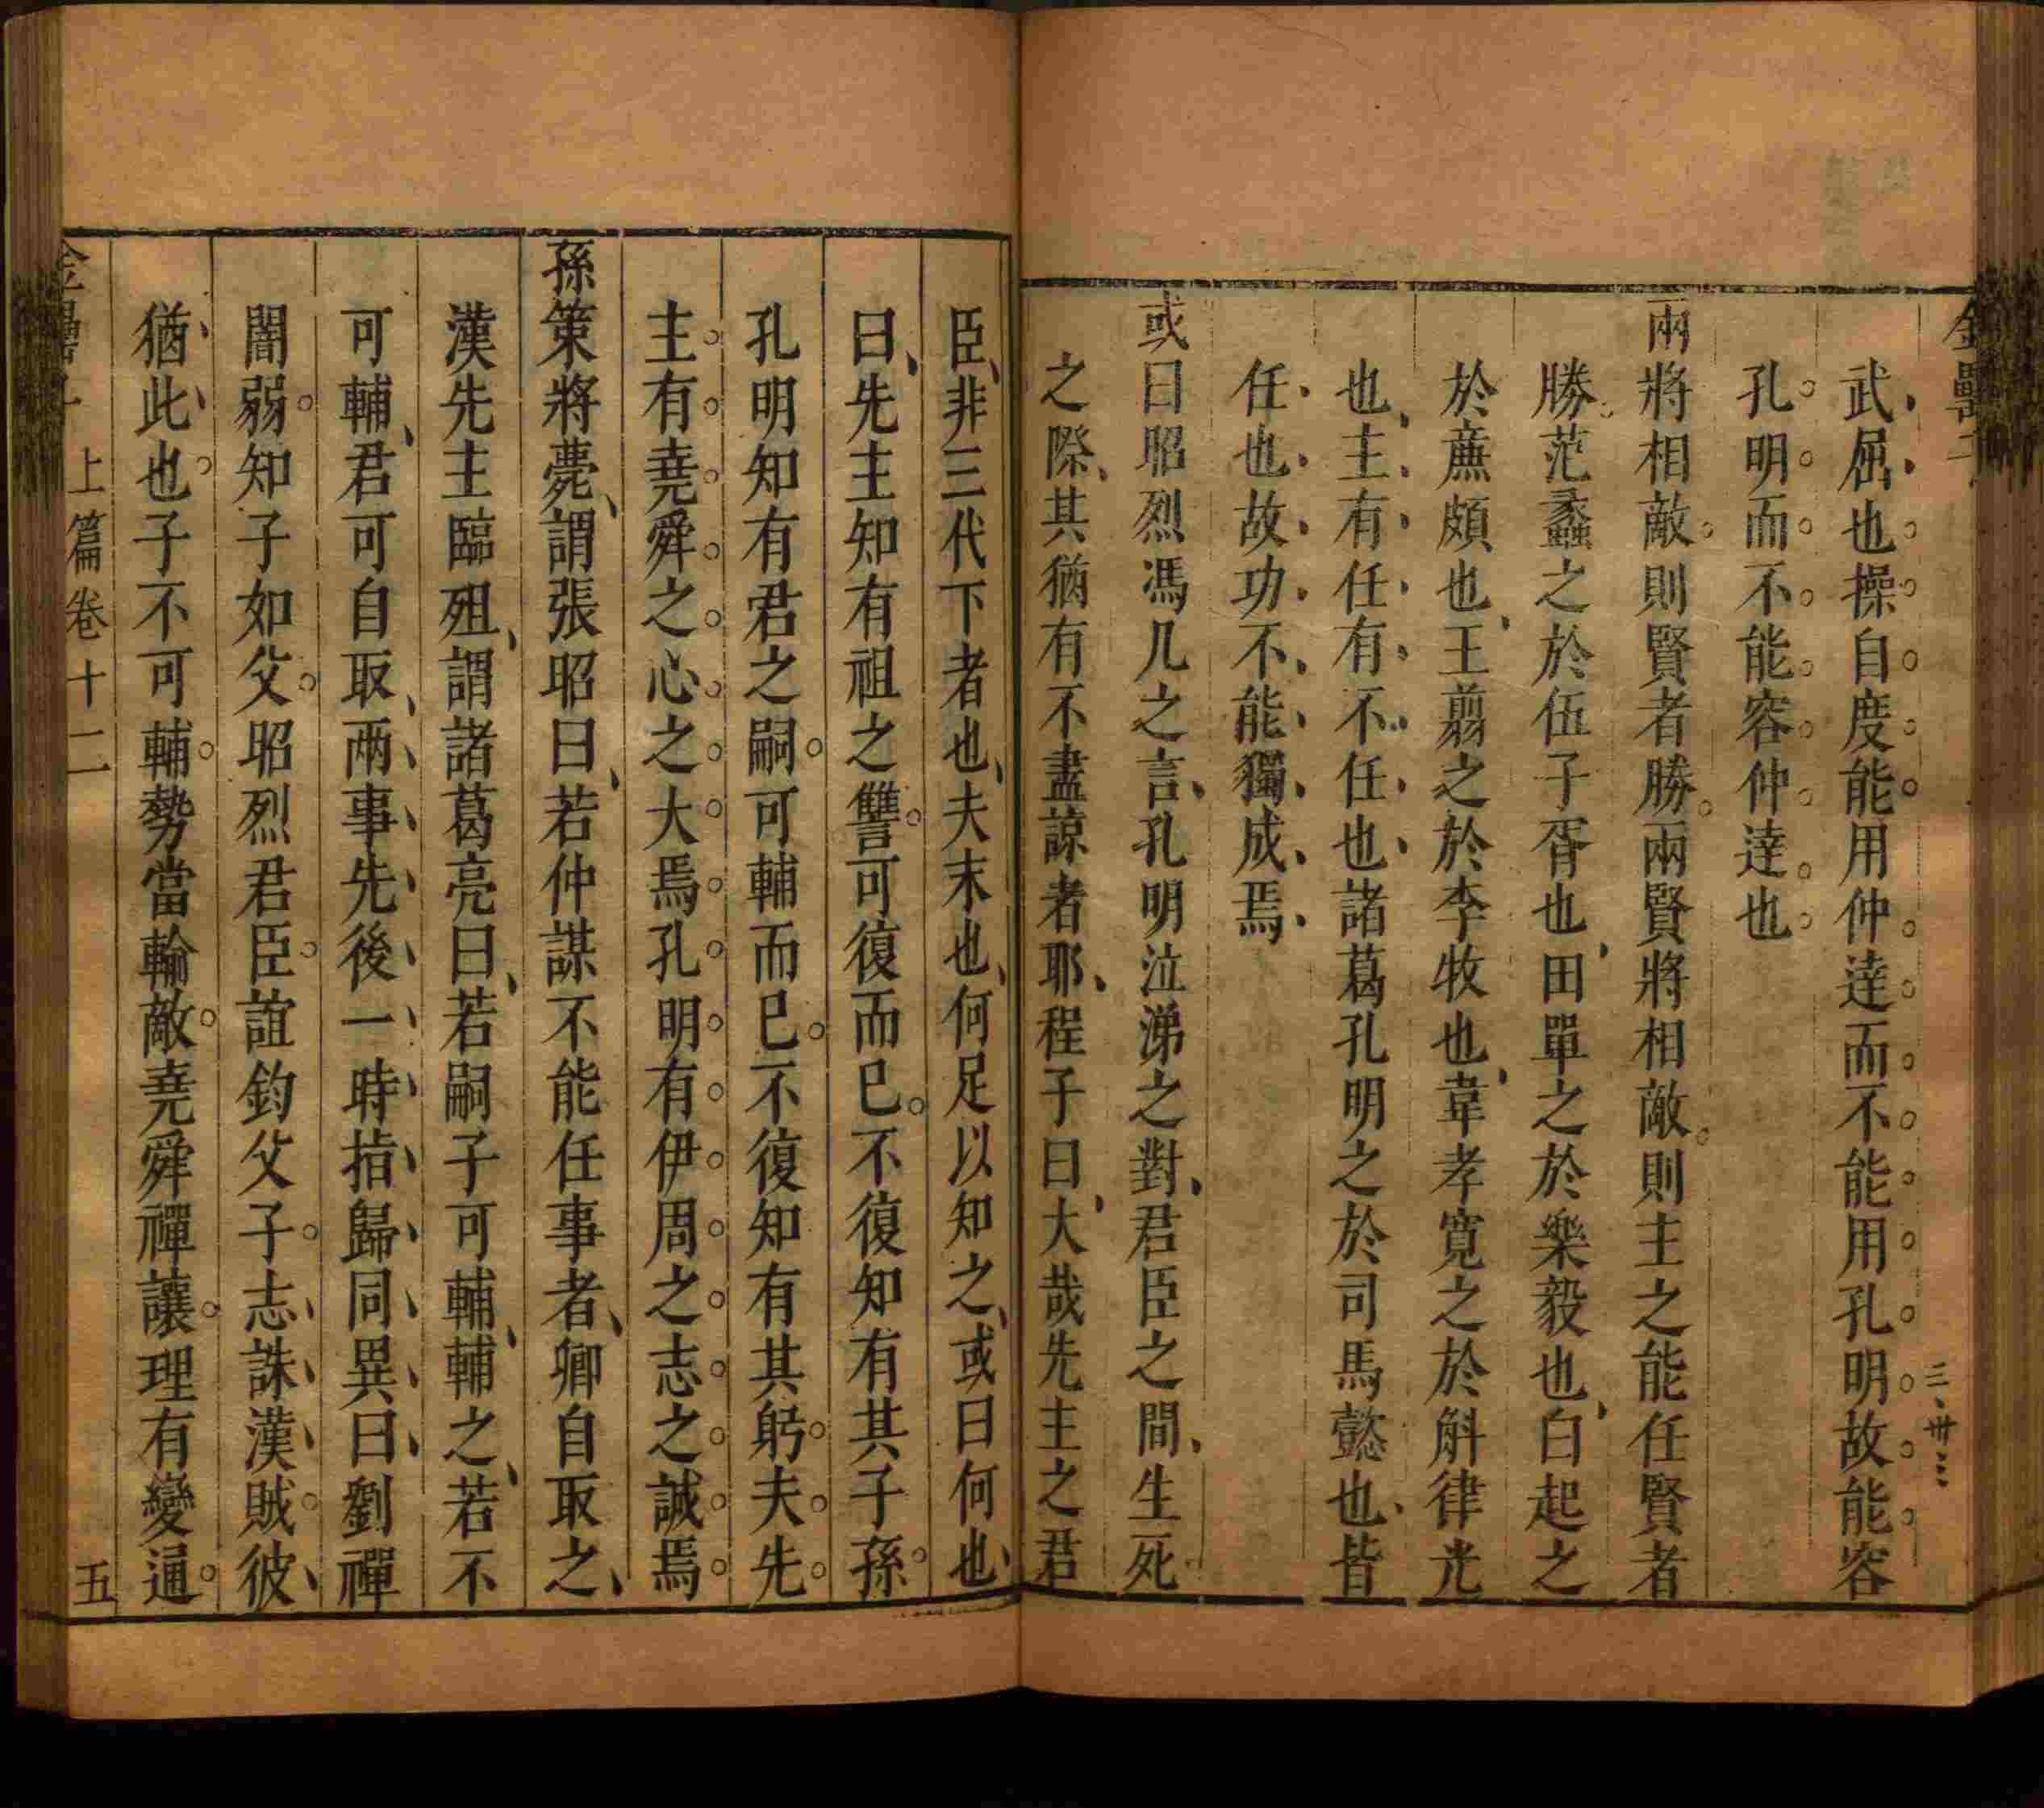 武屈也操自度能用仲逹而不能用孔明故能容
孔明而不能容仲逹也
兩將相敵則賢者勝兩賢將相敵則主之能任賢者
勝范蠡之於伍子胥也田單之於樂毅也白起之
於廉頗也王翦之於李牧也韋孝寬之於斛律光
也主有任有不任也諸葛孔明之於司馬懿也皆
任也故功不能獨成焉
或曰昭烈馮几之言孔明泣涕之對君臣之間生死
之際其猶有不盡諒者耶程子曰大哉先主之君
臣非三代下者也夫末也何足以知之或曰何也
曰先主知有祖之讐可復而已不復知有其子孫
孔明知有君之嗣可輔而已不復知有其躬夫先
主有堯舜之心之大焉孔明有伊周之志之誠焉
孫策將薨謂張昭曰若仲謀不能任事者卿自取之
漢先主臨殂謂諸葛亮曰若嗣子可輔輔之若不
可輔君可自取兩事先後一時指歸同異曰劉禪
闇弱知子如父昭烈君臣誼鈞父子志誅漢賊彼
猶此也子不可輔勢當輸敵堯舜禪讓理有變通
上篇卷十二
五